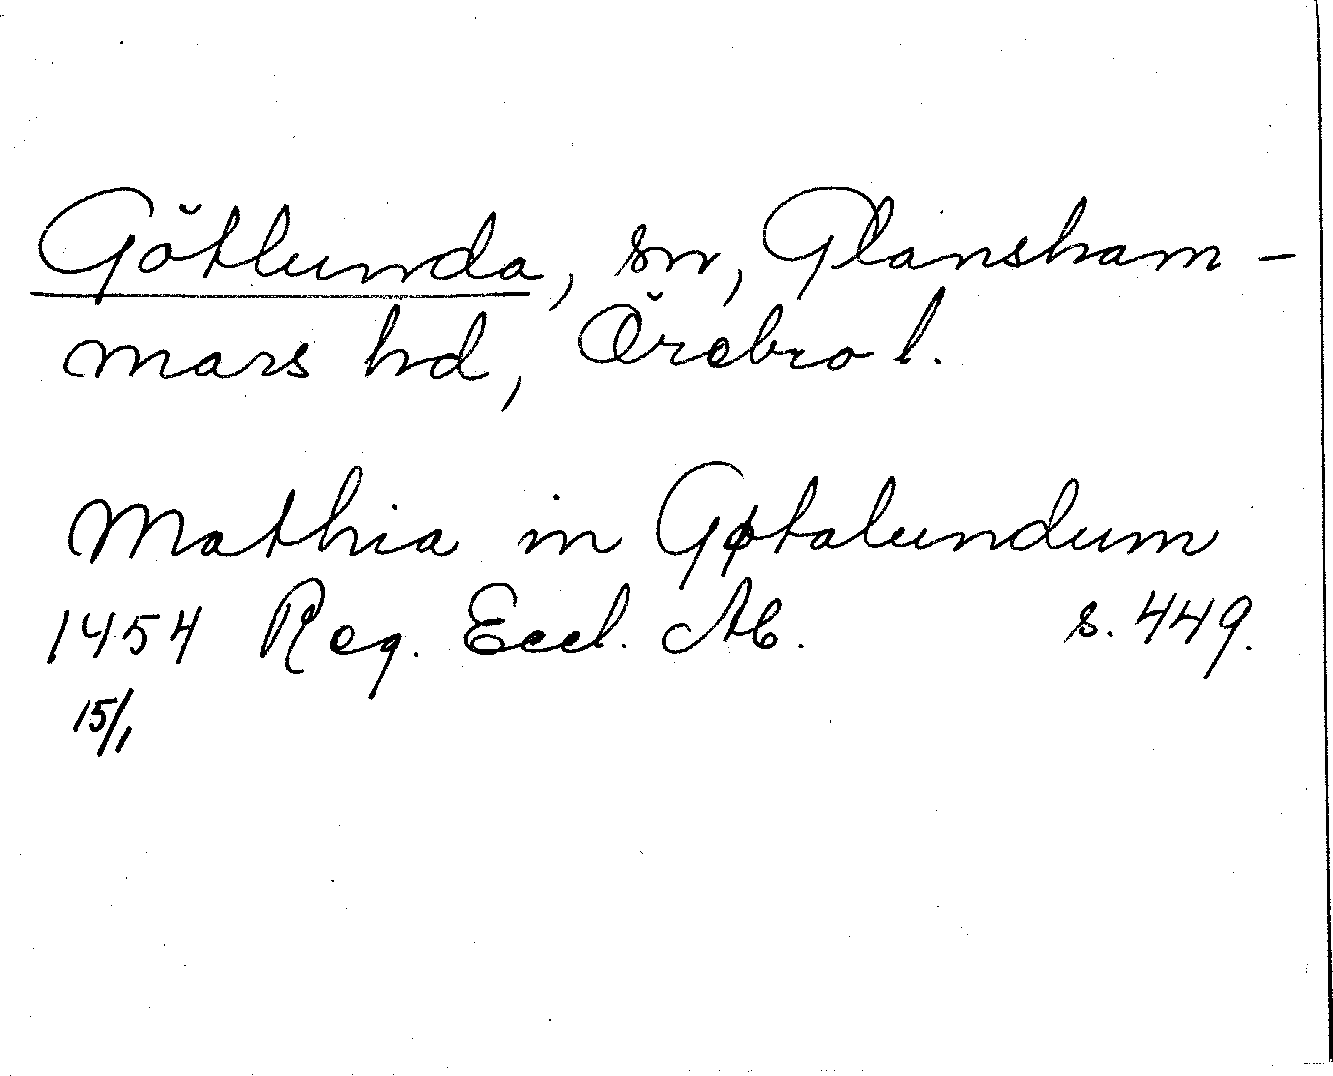 Götlunda, sn, Glansham-
mars hd, Örebro l.
Mathia in Gøtalundum
1454 Reg. Eccl. Ab. s. 449.
15/1